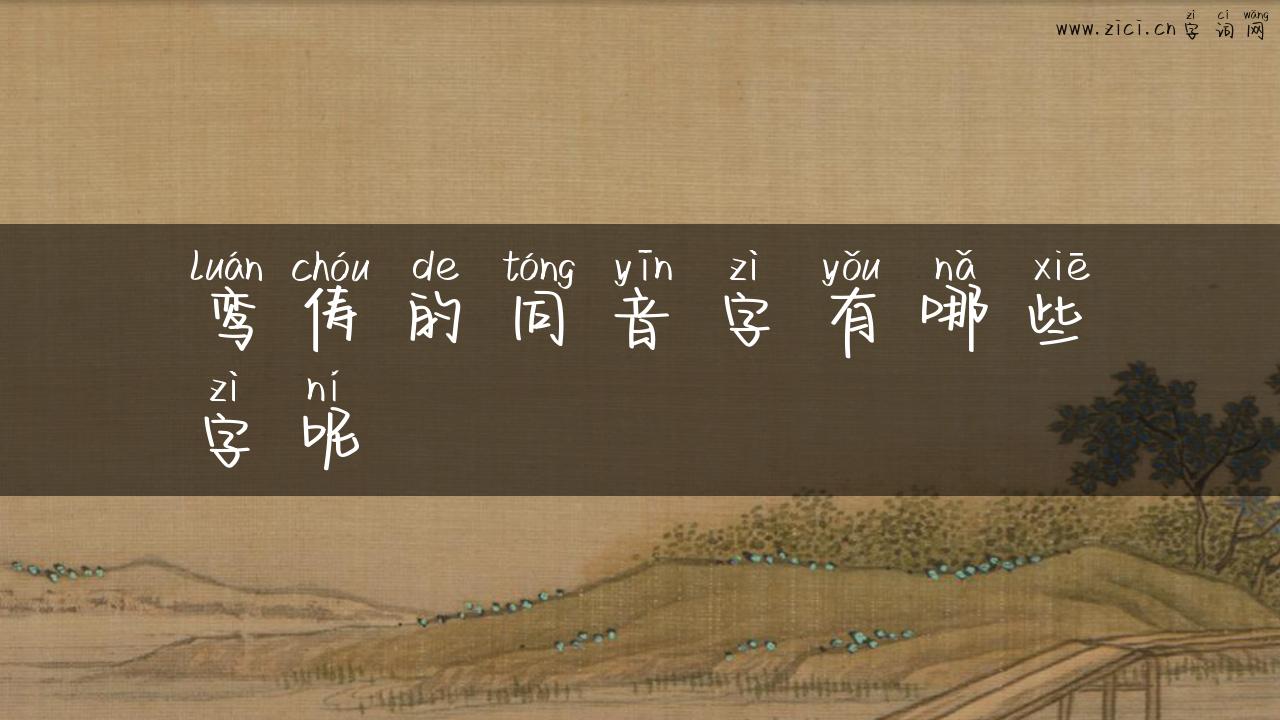 zì cí wǎng
www.zici.cn字词网
luán chóu de tóng yīn zì yǒu nǎ xiē
鸾俦的同音字有哪些
zì ní
字呢